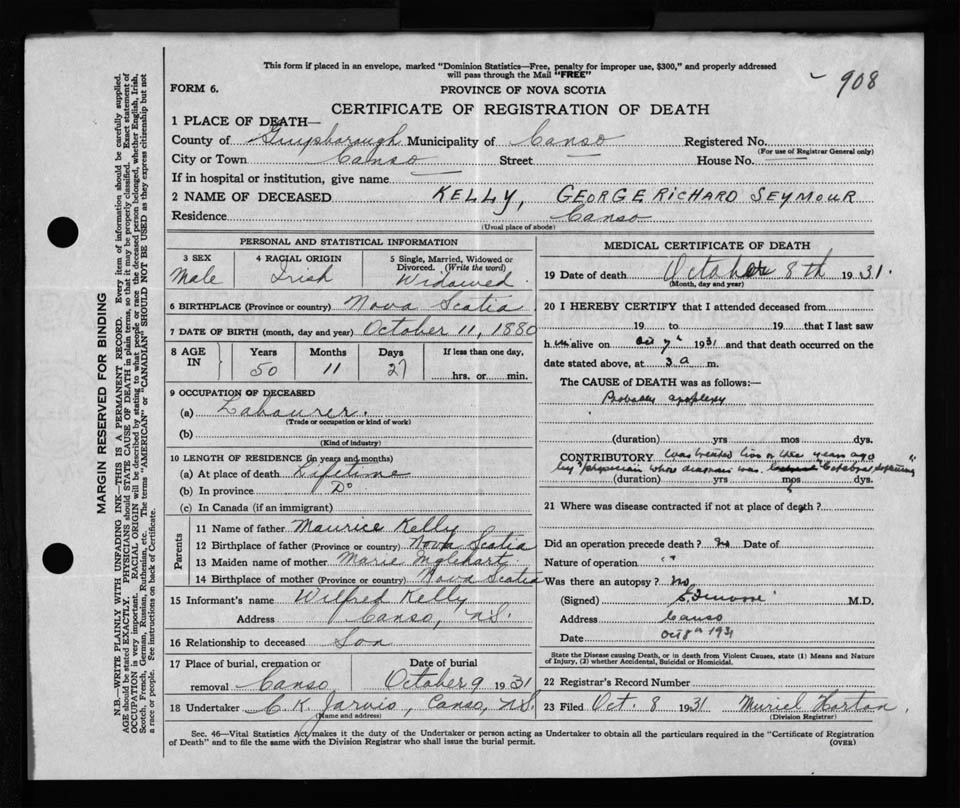 This form if placed in an envelope, marked "Dominion Statistics—Free, penalty for improper use, $300," and properly addressed
will pass through the Mail "FREE"
908
FORM 6.
PROVINCE OF NOVA SCOTIA
CERTIFICATE OF REGISTRATION OF DEATH
1 PLACE OF DEATH—
County of Guysborough Municipality of Canso Registered No.
(For use of Registrar General only)
City or Town Canso Street — House No. —
If in hospital or institution, give name —
2 NAME OF DECEASED KELLY, GEORGE RICHARD SEYMOUR
Residence Canso
(Usual place of abode)
PERSONAL AND STATISTICAL INFORMATION
3 SEX 4 RACIAL ORIGIN 5 Single, Married, Widowed or
Divorced. (Write the word)
Male Irish Widowed
6 BIRTHPLACE (Province or country) Nova Scotia
7 DATE OF BIRTH (month, day and year) October 11, 1880
8 AGE IN Years Months Days If less than one day,
50 11 27 hrs. or min.
9 OCCUPATION OF DECEASED
(a) Labourer.
(Trade or occupation or kind of work)
(b)
(Kind of industry)
10 LENGTH OF RESIDENCE (in years and months)
(a) At place of death Lifetime
(b) In province Do
(c) In Canada (if an immigrant)
Parents
11 Name of father Maurice Kelly
12 Birthplace of father (Province or country) Nova Scotia
13 Maiden name of mother Marie
14 Birthplace of mother (Province or country) Nova Scotia
15 Informant's name Wilfred Kelly
Address Canso, N.S.
16 Relationship to deceased Son
17 Place of burial, cremation or Date of burial
removal Canso October 9 1931
18 Undertaker C. K. Jarvis, Canso, N.S.
(Name and address)
MEDICAL CERTIFICATE OF DEATH
19 Date of death October 8th 1931.
(Month, day and year)
20 I HEREBY CERTIFY that I attended deceased from
19 to 19 that I last saw
h im alive on Oct 7th 1931 and that death occurred on the
date stated above, at 3 a m.
The CAUSE of DEATH was as follows:—
Probably apoplexy
(duration) yrs mos dys.
CONTRIBUTORY Was treated two or three years ago
by physician whose diagnosis was Cerebral softening"
(duration) yrs mos dys.
21 Where was disease contracted if not at place of death?
Did an operation precede death? No Date of
Nature of operation "
Was there an autopsy? No
(Signed) M.D.
Address Canso
Date Oct 8th 1931
State the Disease causing Death, or in death from Violent Causes, state (1) Means and Nature
of Injury, (2) whether Accidental, Suicidal or Homicidal.
22 Registrar's Record Number
23 Filed Oct. 8 1931 Muriel Horton
(Division Registrar)
Sec. 46—Vital Statistics Act, makes it the duty of the Undertaker or person acting as Undertaker to obtain all the particulars required in the "Certificate of Registration
of Death" and to file the same with the Division Registrar who shall issue the burial permit.
(OVER)
MARGIN RESERVED FOR BINDING
N.B.—WRITE PLAINLY WITH UNFADING INK—THIS IS A PERMANENT RECORD. Every item of information should be carefully supplied.
AGE should be stated EXACTLY. PHYSICIANS should STATE CAUSE OF DEATH in plain terms, so that it may be properly classified. Exact statement of
OCCUPATION is very important. RACIAL ORIGIN will be described by stating to what people or race the deceased person belonged, whether English, Irish,
Scotch, French, German, Russian, Ruthenian, etc. The terms "AMERICAN" or "CANADIAN" SHOULD NOT BE USED as they express citizenship but not
a race or people. See instructions on back of Certificate.